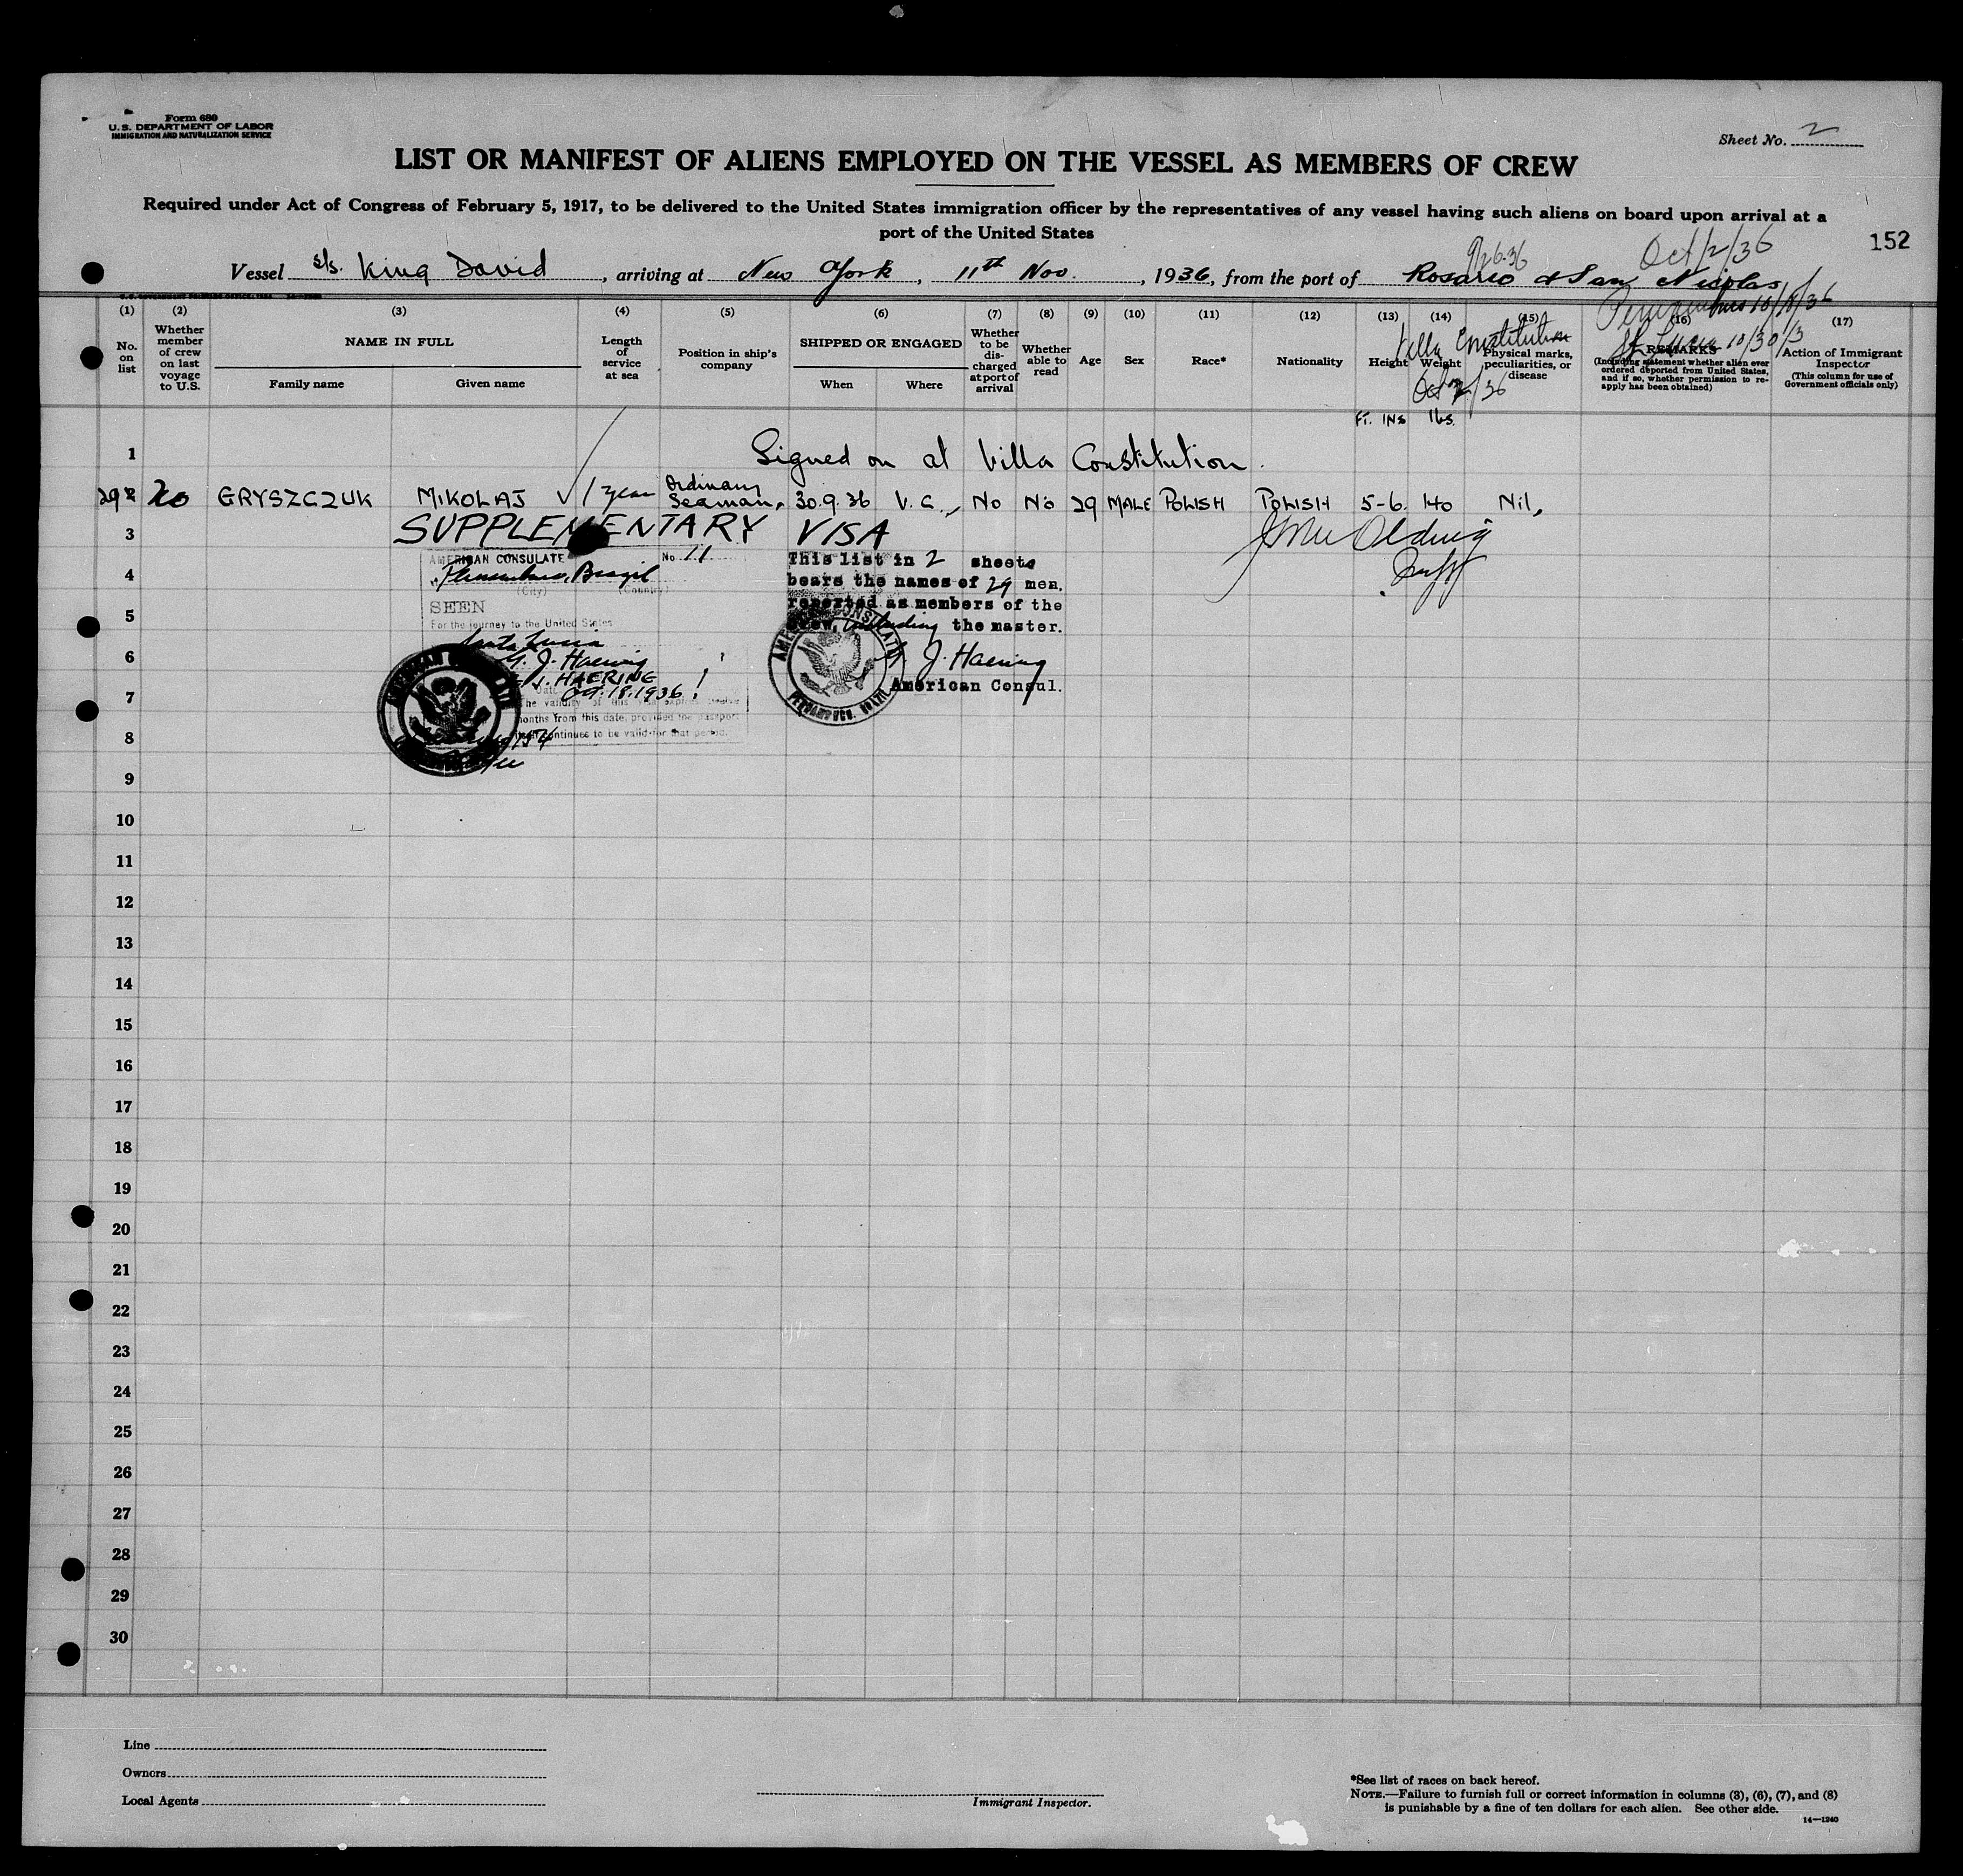 Form 680
U. S. DEPARTMENT OF LABOR
IMMIGRATION AND NATURALIZATION SERVICE
Sheet No. 2
LIST OR MANIFEST OF ALIENS EMPLOYED ON THE VESSEL AS MEMBERS OF CREW
Required under Act of Congress of February 5, 1917, to be delivered to the United States immigration officer by the representatives of any vessel having such aliens on board upon arrival at a
port of the United States
152
9/26-36 Oct/2/36
Vessel s/s. King David, arriving at New York, 11th Nov., 1936, from the port of Rosario & San Nicolas
Pernambuco 10/18/36
St Lucia 10/30/3
Villa Constitution
Oct 2/36
(1) (2) (3) (4) (5) (6) (7) (8) (9) (10) (11) (12) (13) (14) (15) (16) (17)
No. on list
Whether member of crew on last voyage to U.S.
NAME IN FULL
Family name Given name
Length of service at sea
Position in ship's company
SHIPPED OR ENGAGED
When Where
Whether to be discharged at port of arrival
Whether able to read
Age
Sex
Race*
Nationality
Height
Weight
Physical marks, peculiarities, or disease
REMARKS
(Including statement whether alien ever ordered deported from United States, and if so, whether permission to reapply has been obtained)
Action of Immigrant Inspector
(This column for use of Government officials only)
Ft. INS lbs.
1 Signed on at Villa Constitution.
29 2 No GRYSZCZUK MIKOLAJ 1 year Ordinary Seaman. 30.9.36 V.C., No No 29 MALE POLISH POLISH 5-6. 140 Nil.
3 SUPPLEMENTARY VISA
AMERICAN CONSULATE No. 11
Pernambuco, Brazil
(City) (Country)
SEEN
For the journey to the United States
Santa Lucia
G. J. Haering
G. J. HAERING
Date Oct. 18. 1936
The validity of this visa expires twelve
months from this date, provided the passport
continues to be valid for that period.
This list in 2 sheets
bears the names of 29 men,
reported as members of the
crew, including the master.
G. J. Haering
American Consul.
AMERICAN CONSULATE
PERNAMBUCO, BRAZIL
4
5
6
7
8
9
10
11
12
13
14
15
16
17
18
19
20
21
22
23
24
25
26
27
28
29
30
Line
Owners
Local Agents
Immigrant Inspector.
*See list of races on back hereof.
NOTE.—Failure to furnish full or correct information in columns (3), (6), (7), and (8)
is punishable by a fine of ten dollars for each alien. See other side.
14—1240